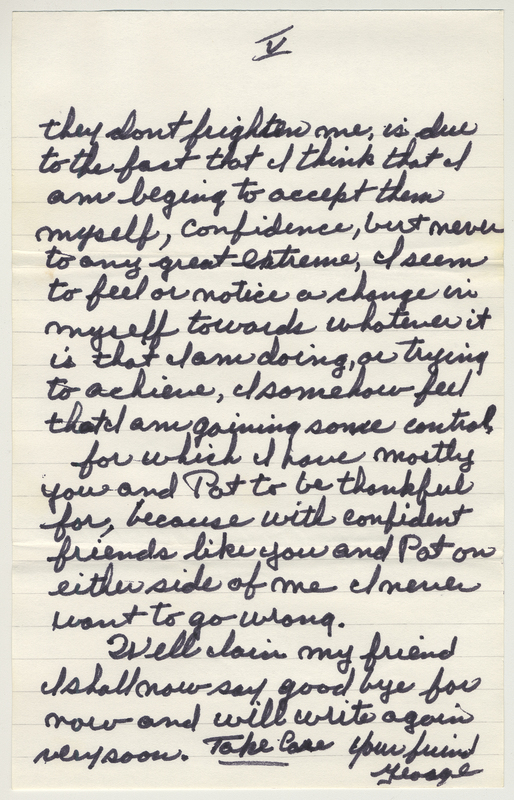 V
they dont frighten me, is due
to the fact that I think that I
am beging to accept them
myself, Confidence, but never
to any great extreme, I seem
to feel or notice a change in
myself towards whatever it
is that I am doing, or trying
to achieve, I somehow feel
that I am gaining some control,
for which I have mostly
you and Pat to be thankful
for, because with confident
friends like you and Pat on
either side of me I never
want to go wrong.
Well my friend
I shall now say good bye for
now and will write again
very soon. Take Care your friend
George